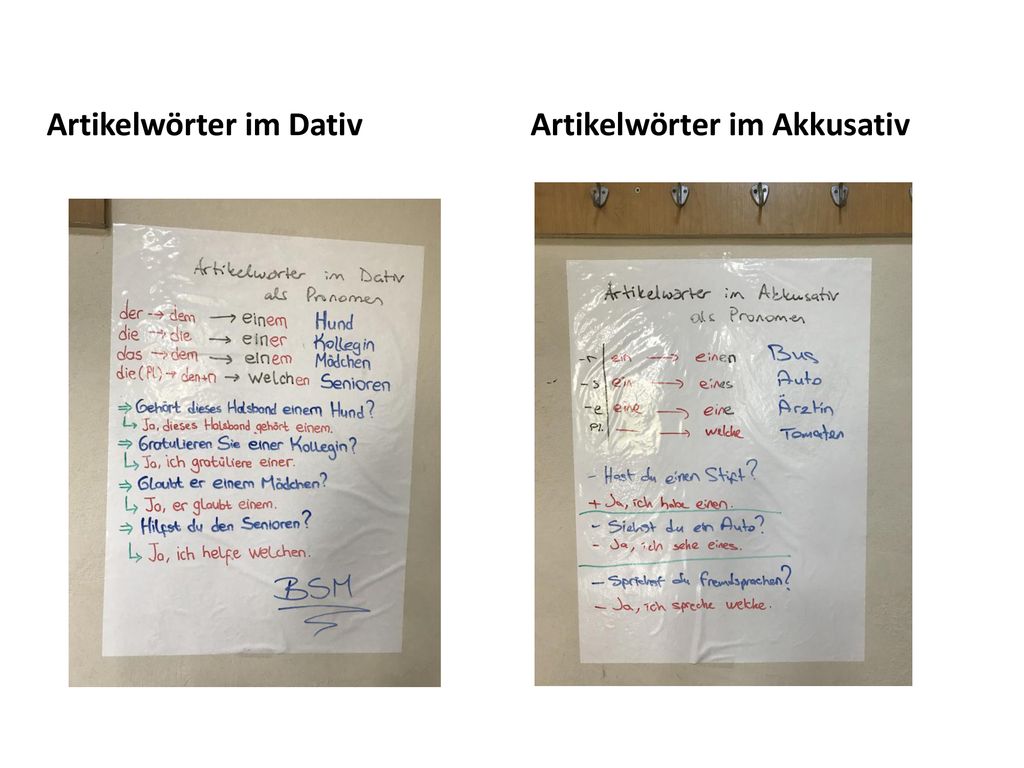 Artikelwörter im Dativ
Artikelwörter im Dativ
als Pronomen
der → dem → einem Hund
die → die → einer Kollegin
das → dem → einem Mädchen
die (Pl.) → den+n → welchen Senioren
⇒ Gehört dieses Halsband einem Hund?
↳ Ja, dieses Halsband gehört einem.
⇒ Gratulieren Sie einer Kollegin?
↳ Ja, ich gratuliere einer.
⇒ Glaubt er einem Mädchen?
↳ Ja, er glaubt einem.
⇒ Hilfst du den Senioren?
↳ Ja, ich helfe welchen.
BSM
Artikelwörter im Akkusativ
Artikelwörter im Akkusativ
als Pronomen
-r ein → einen Bus
-s ein → eines Auto
-e eine → eine Ärztin
Pl. — → welche Tomaten
- Hast du einen Stift?
+ Ja, ich habe einen.
- Siehst du ein Auto?
- Ja, ich sehe eines.
- Sprichst du Fremdsprachen?
- Ja, ich spreche welche.